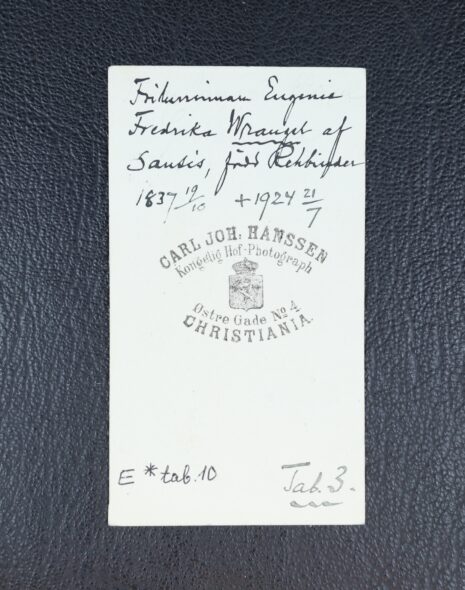 Friherrinnan Eugenie
Fredrika Wrangel af
Sausis, född Rehbinder
1837 19/10 +1924 21/7
CARL JOH: HANSSEN
Kongelig Hof-Photograph
Østre Gade No 4
CHRISTIANIA.
E * tab.10
Tab. 3.